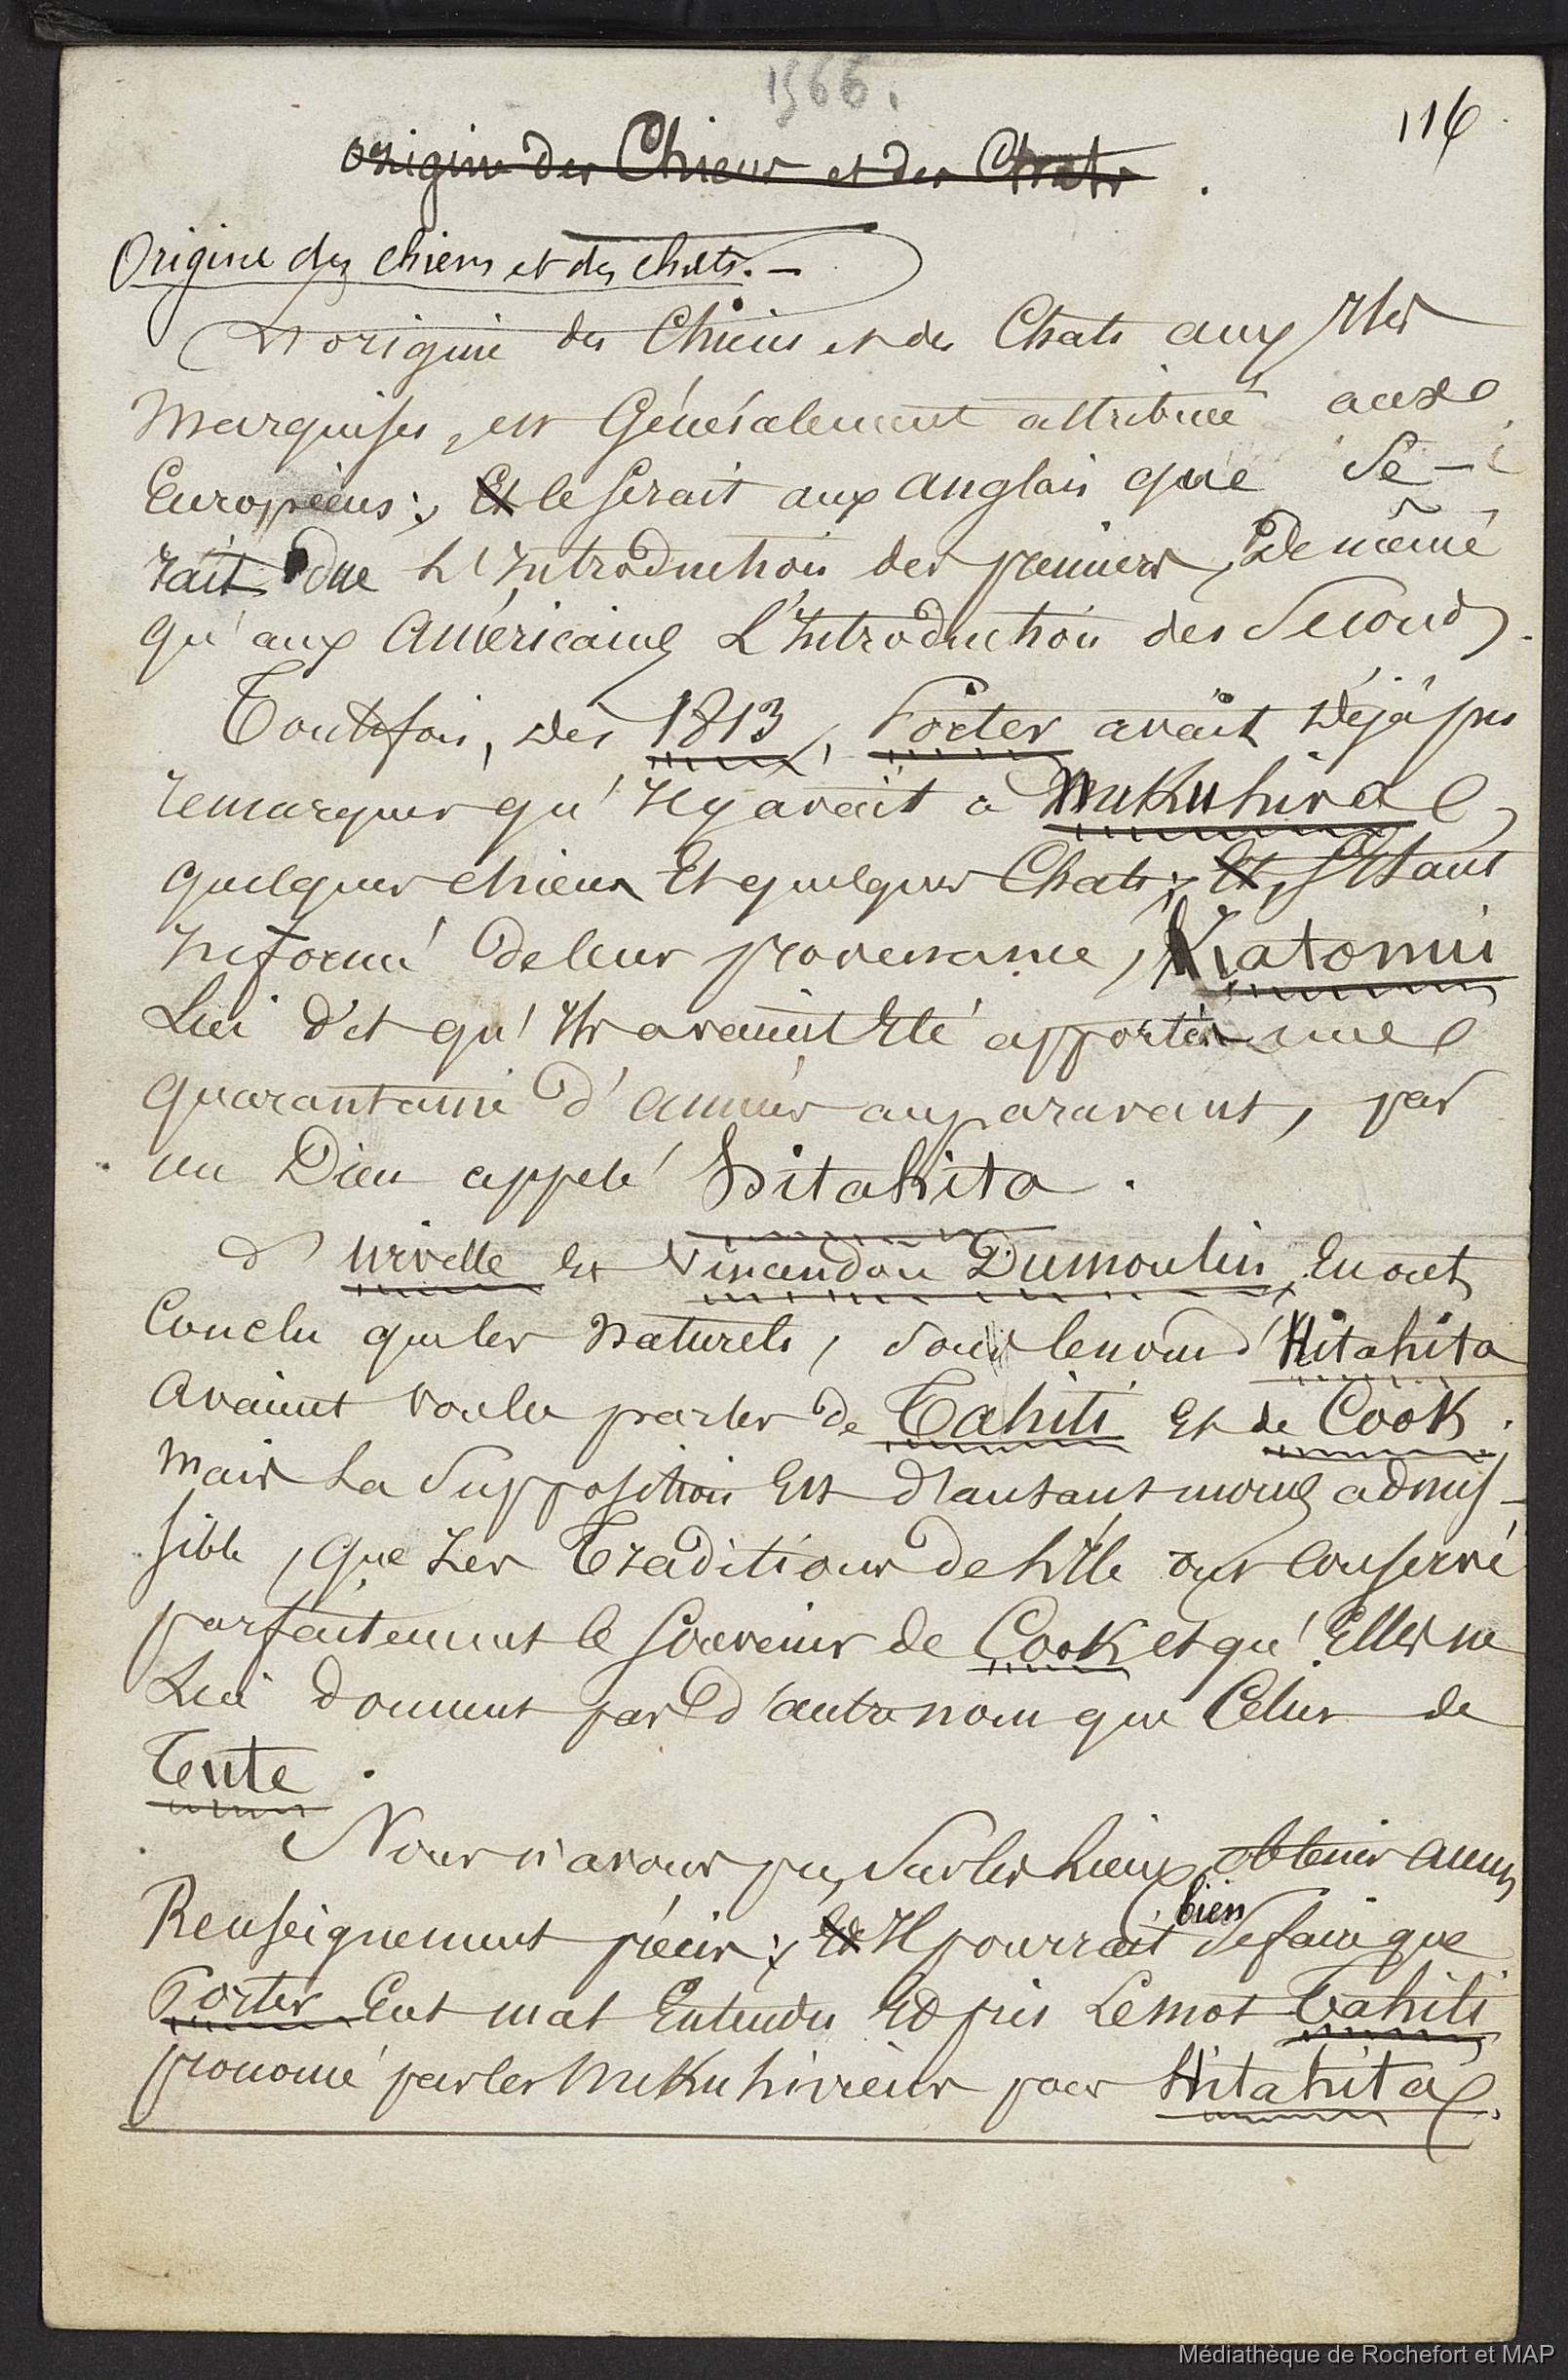 1566.
116
Origine des Chiens et des Chats.
Origine des chiens et des chats. —
L'origine des Chiens et des Chats aux Iles
Marquises, est Généralement attribuée aux
Européens; Et ce serait aux anglais que se-
rait due L'Introduction des premiers, De même
qu'aux Américains L'Introduction des Seconds.
Toutefois, dès 1813, Porter avait Déjà pu
remarquer qu'Il y avait à Nukuhiva
quelques chiens Et quelques Chats; Et, s'Etant
Informé De leur provenance, Kiatonui
Lui dit qu'Ils avaient Eté apportés une
quarantaine d'années auparavant, par
un Dieu appelé Hitahita.
d'Urville et Vincendon Dumoulin, En ont
Conclu que les Naturels, sous le nom d'Hitahita
avaient voulu parler de Tahiti Et de Cook.
Mais La Supposition Est d'autant moins admis-
sible, que Les Traditions de L'Ile ont Conservé
parfaitement le Souvenir de Cook et qu'Elles ne
Lui donnent pas d'autre nom que Celui de
Tute.
Nous n'avons pu, Sur les Lieux, obtenir aucun
Renseignement précis; Et Il pourrait bien Se faire que
Porter Eut mal Entendu Et pris Le mot Tahiti
prononcé par les Nukuhiviens pour Hitahita.
Médiathèque de Rochefort et MAP